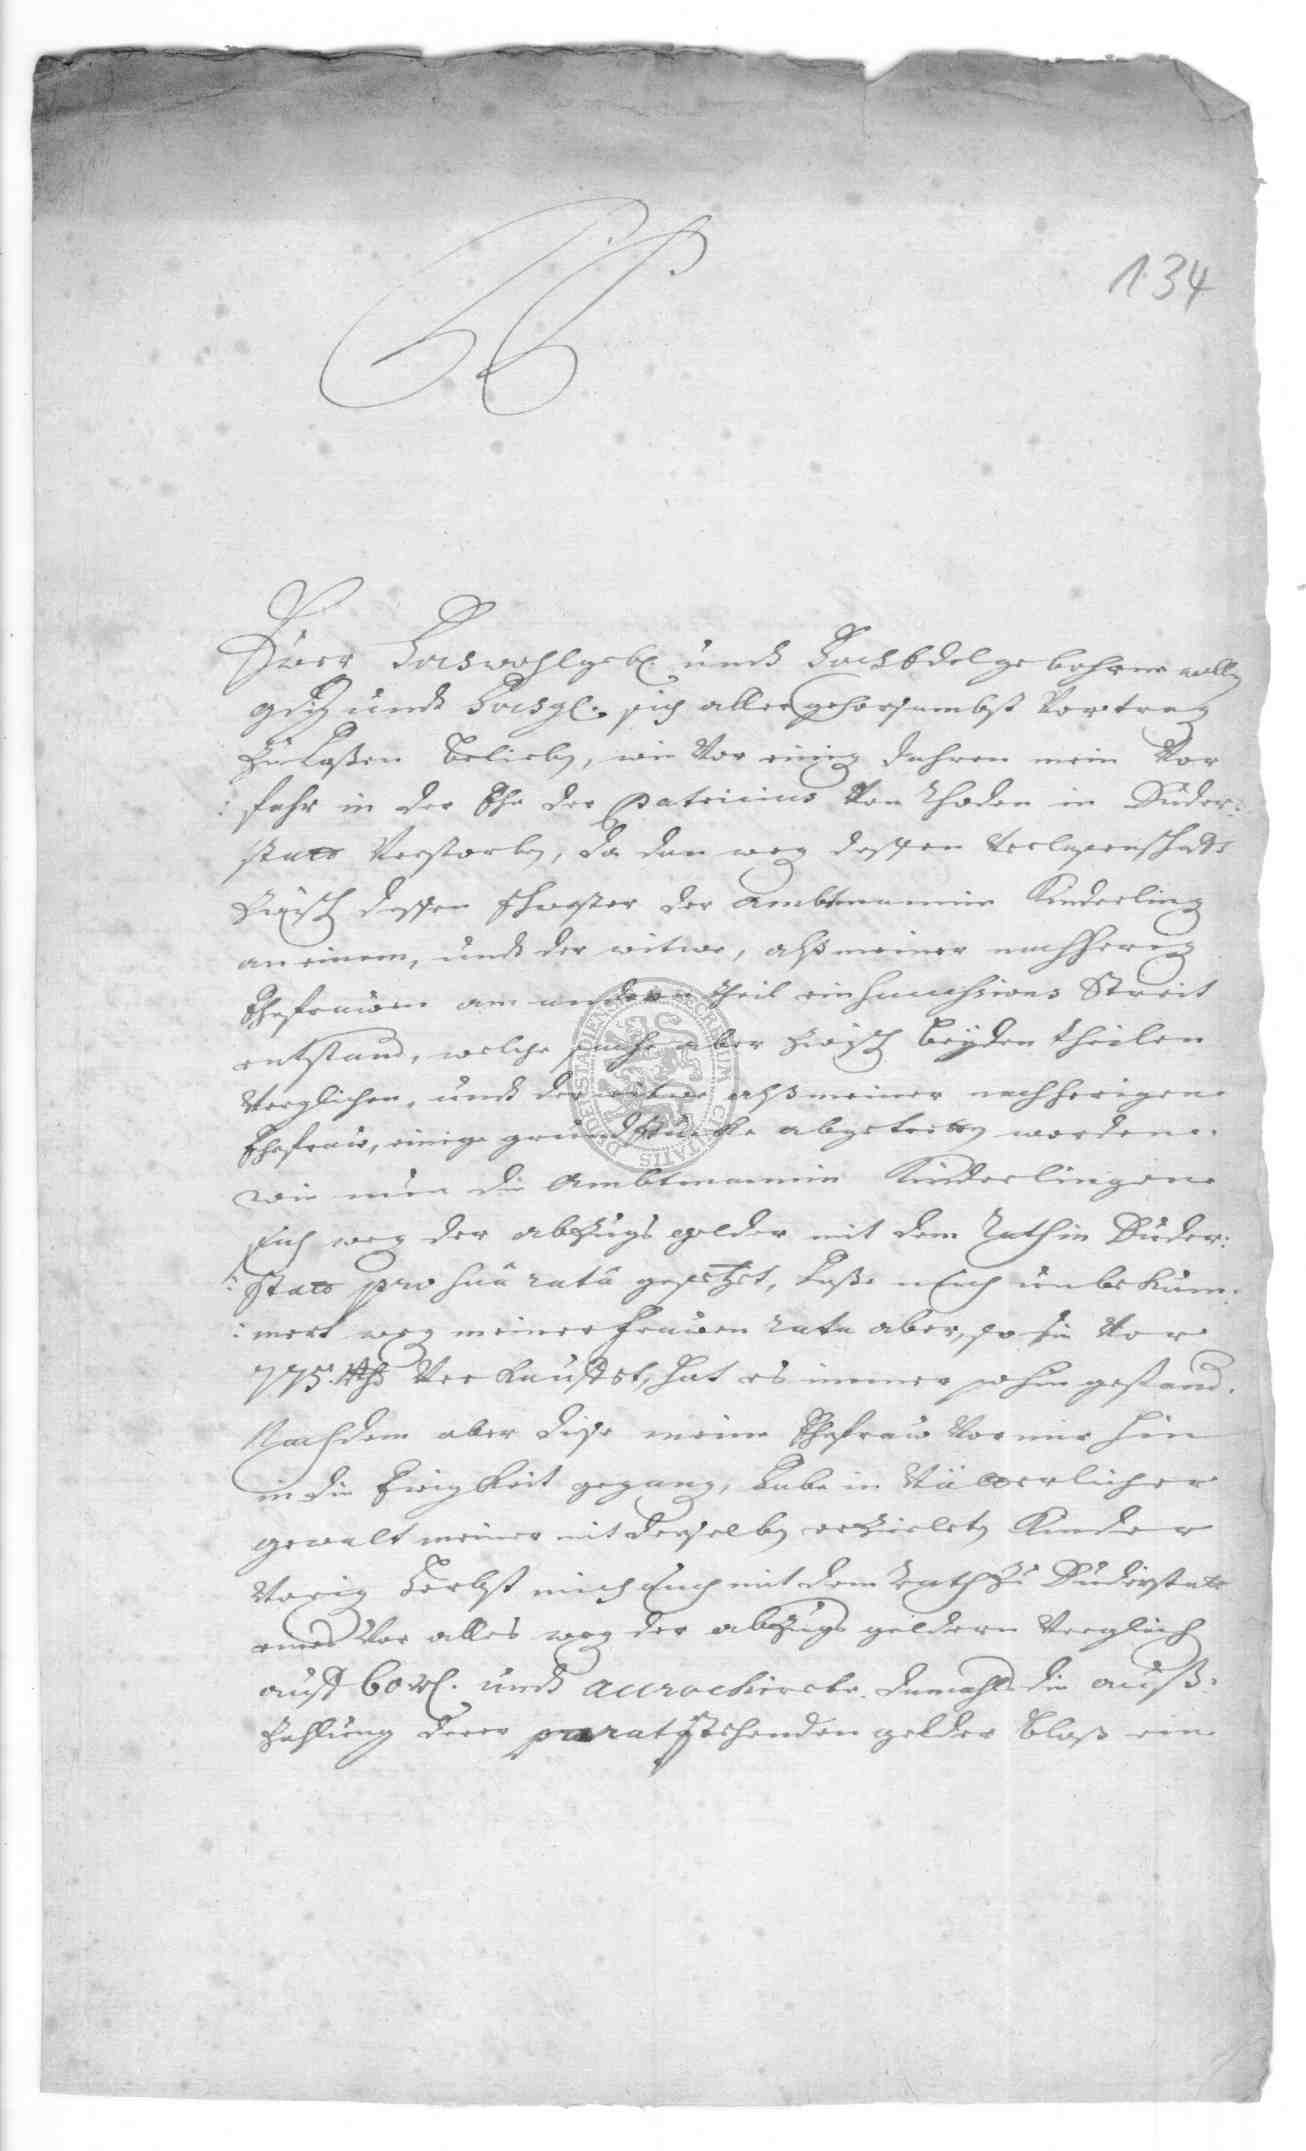 134
P P
Euer Hochwohlgeb. undt HochEdelgebohrne wolln
gdig undt hochgl. sich aller gehorsambst Vortrag
zu Laßen belieben, wie Vor einig Jahren mein Vor
: fahr in der Ehe der patricius Von Rhoden in Duder:
statt Verstorben, da dan weg dessen Verlaßenschafft
zwisch dessen schwester der ambtmannin Kinderling
an einem, undt der witwe, alß meiner nachherig
Ehefrauen am andern theil ein Successions Streit
entstand, welche sache aber zwisch beyden theilen
Verglichen, undt der witwe alß meiner nachherigen
Ehefrau, einige grundstücke abgetretten worden.
wie nun die Ambtmannin Kinderlingen
sich weg der abzugs gelder mit dem Rath in Duder:
: statt pro suâ ratâ gesetzet, Laße ich unbeküm:
: mert weg meiner frauen rata aber, so sie Vor
775 Rthl Verkaufft, hat es immer so hin gestand.
Nachdem aber diese meine Ehefrau Vor mir hin
in die Ewigkeit gegang, habe in Vätterlicher
gewalt meiner mit derselben erzielten Kinder
Vorig herbst mich auch mit dem Rath zu Duderstatt
eines Vor alles weg der abzugs geldern Verglich
auff 60 rl. undt damahls die auß:
zahlung derer parat stehenden gelder bloß ein
SECRETUM CIVITATIS DUDERSTADIENSIS